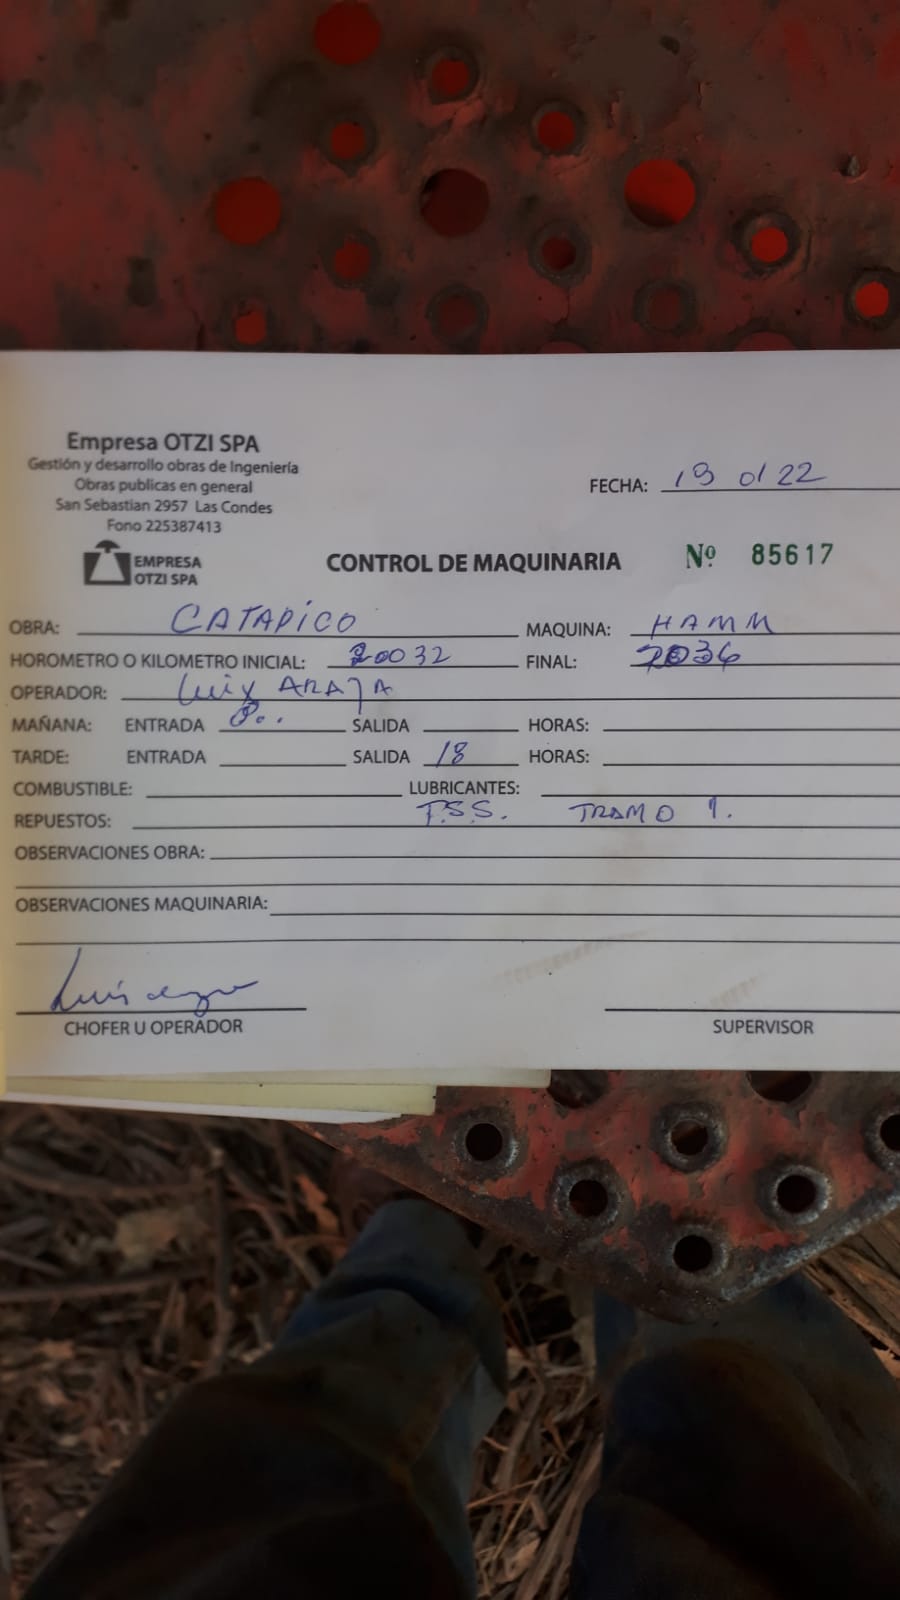 Empresa OTZI SPA
Gestión y desarrollo obras de Ingeniería
Obras publicas en general
San Sebastian 2957 Las Condes
Fono 225387413
EMPRESA
OTZI SPA
FECHA: 19 01 22
CONTROL DE MAQUINARIA Nº 85617
OBRA: CATAPICO MAQUINA: HAMM
HOROMETRO O KILOMETRO INICIAL: 20032 FINAL: 2036
OPERADOR: Luix ARAJA
MAÑANA: ENTRADA 8.. SALIDA HORAS:
TARDE: ENTRADA SALIDA 18 HORAS:
COMBUSTIBLE: LUBRICANTES:
REPUESTOS: T.S.S. TRAMO 1.
OBSERVACIONES OBRA:
OBSERVACIONES MAQUINARIA:
Luis
CHOFER U OPERADOR SUPERVISOR